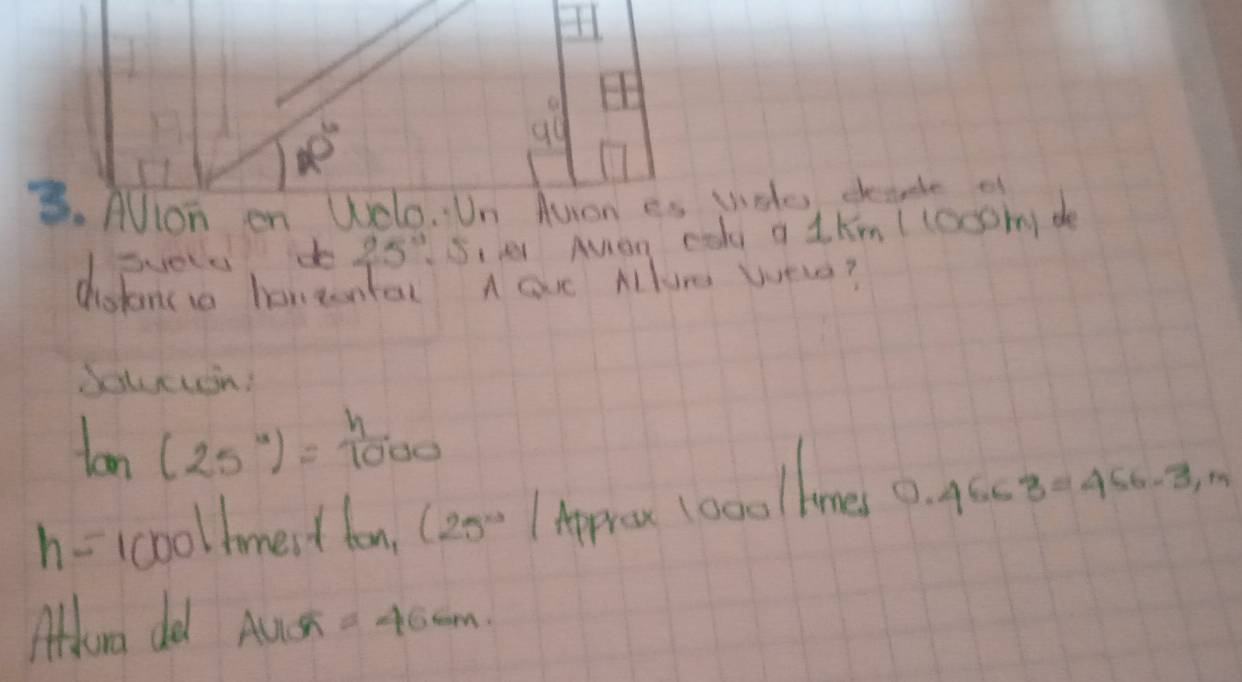 90°
3. AVIon en Vuelo. Un Avion es visto desde el
suelo de 25°. Si el Avion esta a 1Km (1000m) de
distancia horizontal A Que Altura Vuela?
Solucion:
tan (25°) = h/1000
h = 1000\times\ tan, (25° \Approx 1000\times 0.4663 = 466.3, m
Altura del Avion = 466m.